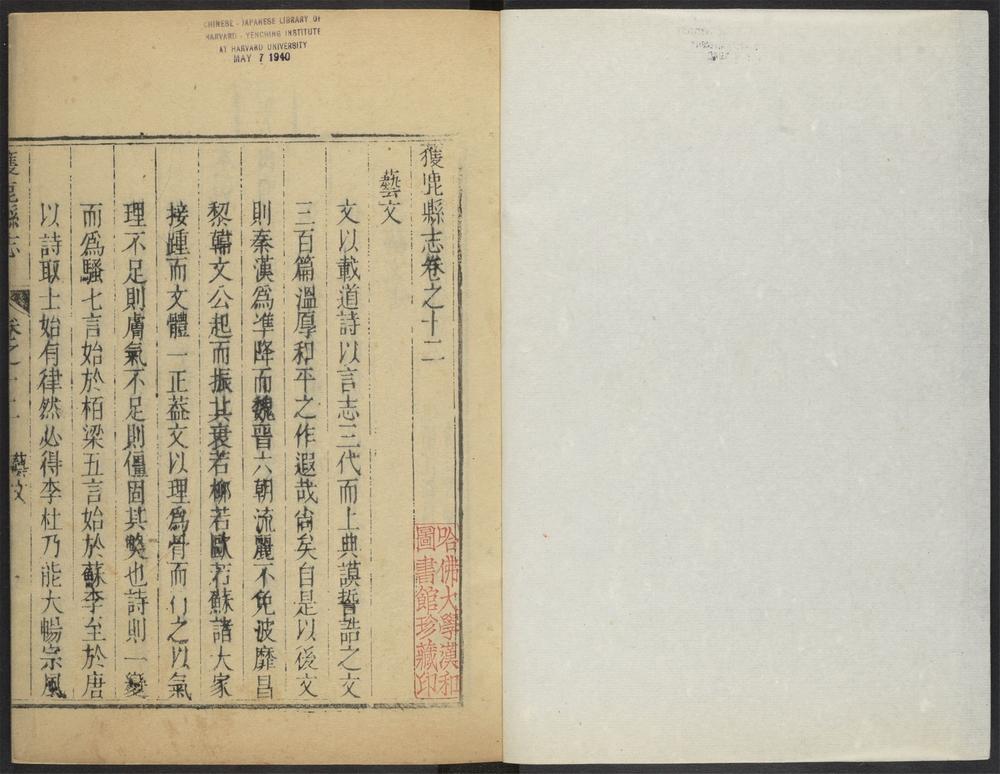 CHINESE - JAPANESE LIBRARY OF
HARVARD - YENCHING INSTITUTE
AT HARVARD UNIVERSITY
MAY 7 1940
獲鹿縣志卷之十二
哈佛大學漢和
圖書館珍藏印
藝文
文以載道詩以言志三代而上典謨誓誥之文
三百篇溫厚和平之作遐哉尚矣自是以後文
則秦漢爲準降而魏晉六朝流麗不免波靡昌
黎韓文公起而振其衰若柳若歐若蘇諸大家
接踵而文體一正葢文以理爲骨而行之以氣
理不足則膚氣不足則僵固其弊也詩則一變
而爲騷七言始於栢梁五言始於蘇李至於唐
以詩取士始有律然必得李杜乃能大暢宗風
獲鹿縣志
卷之十二
藝文